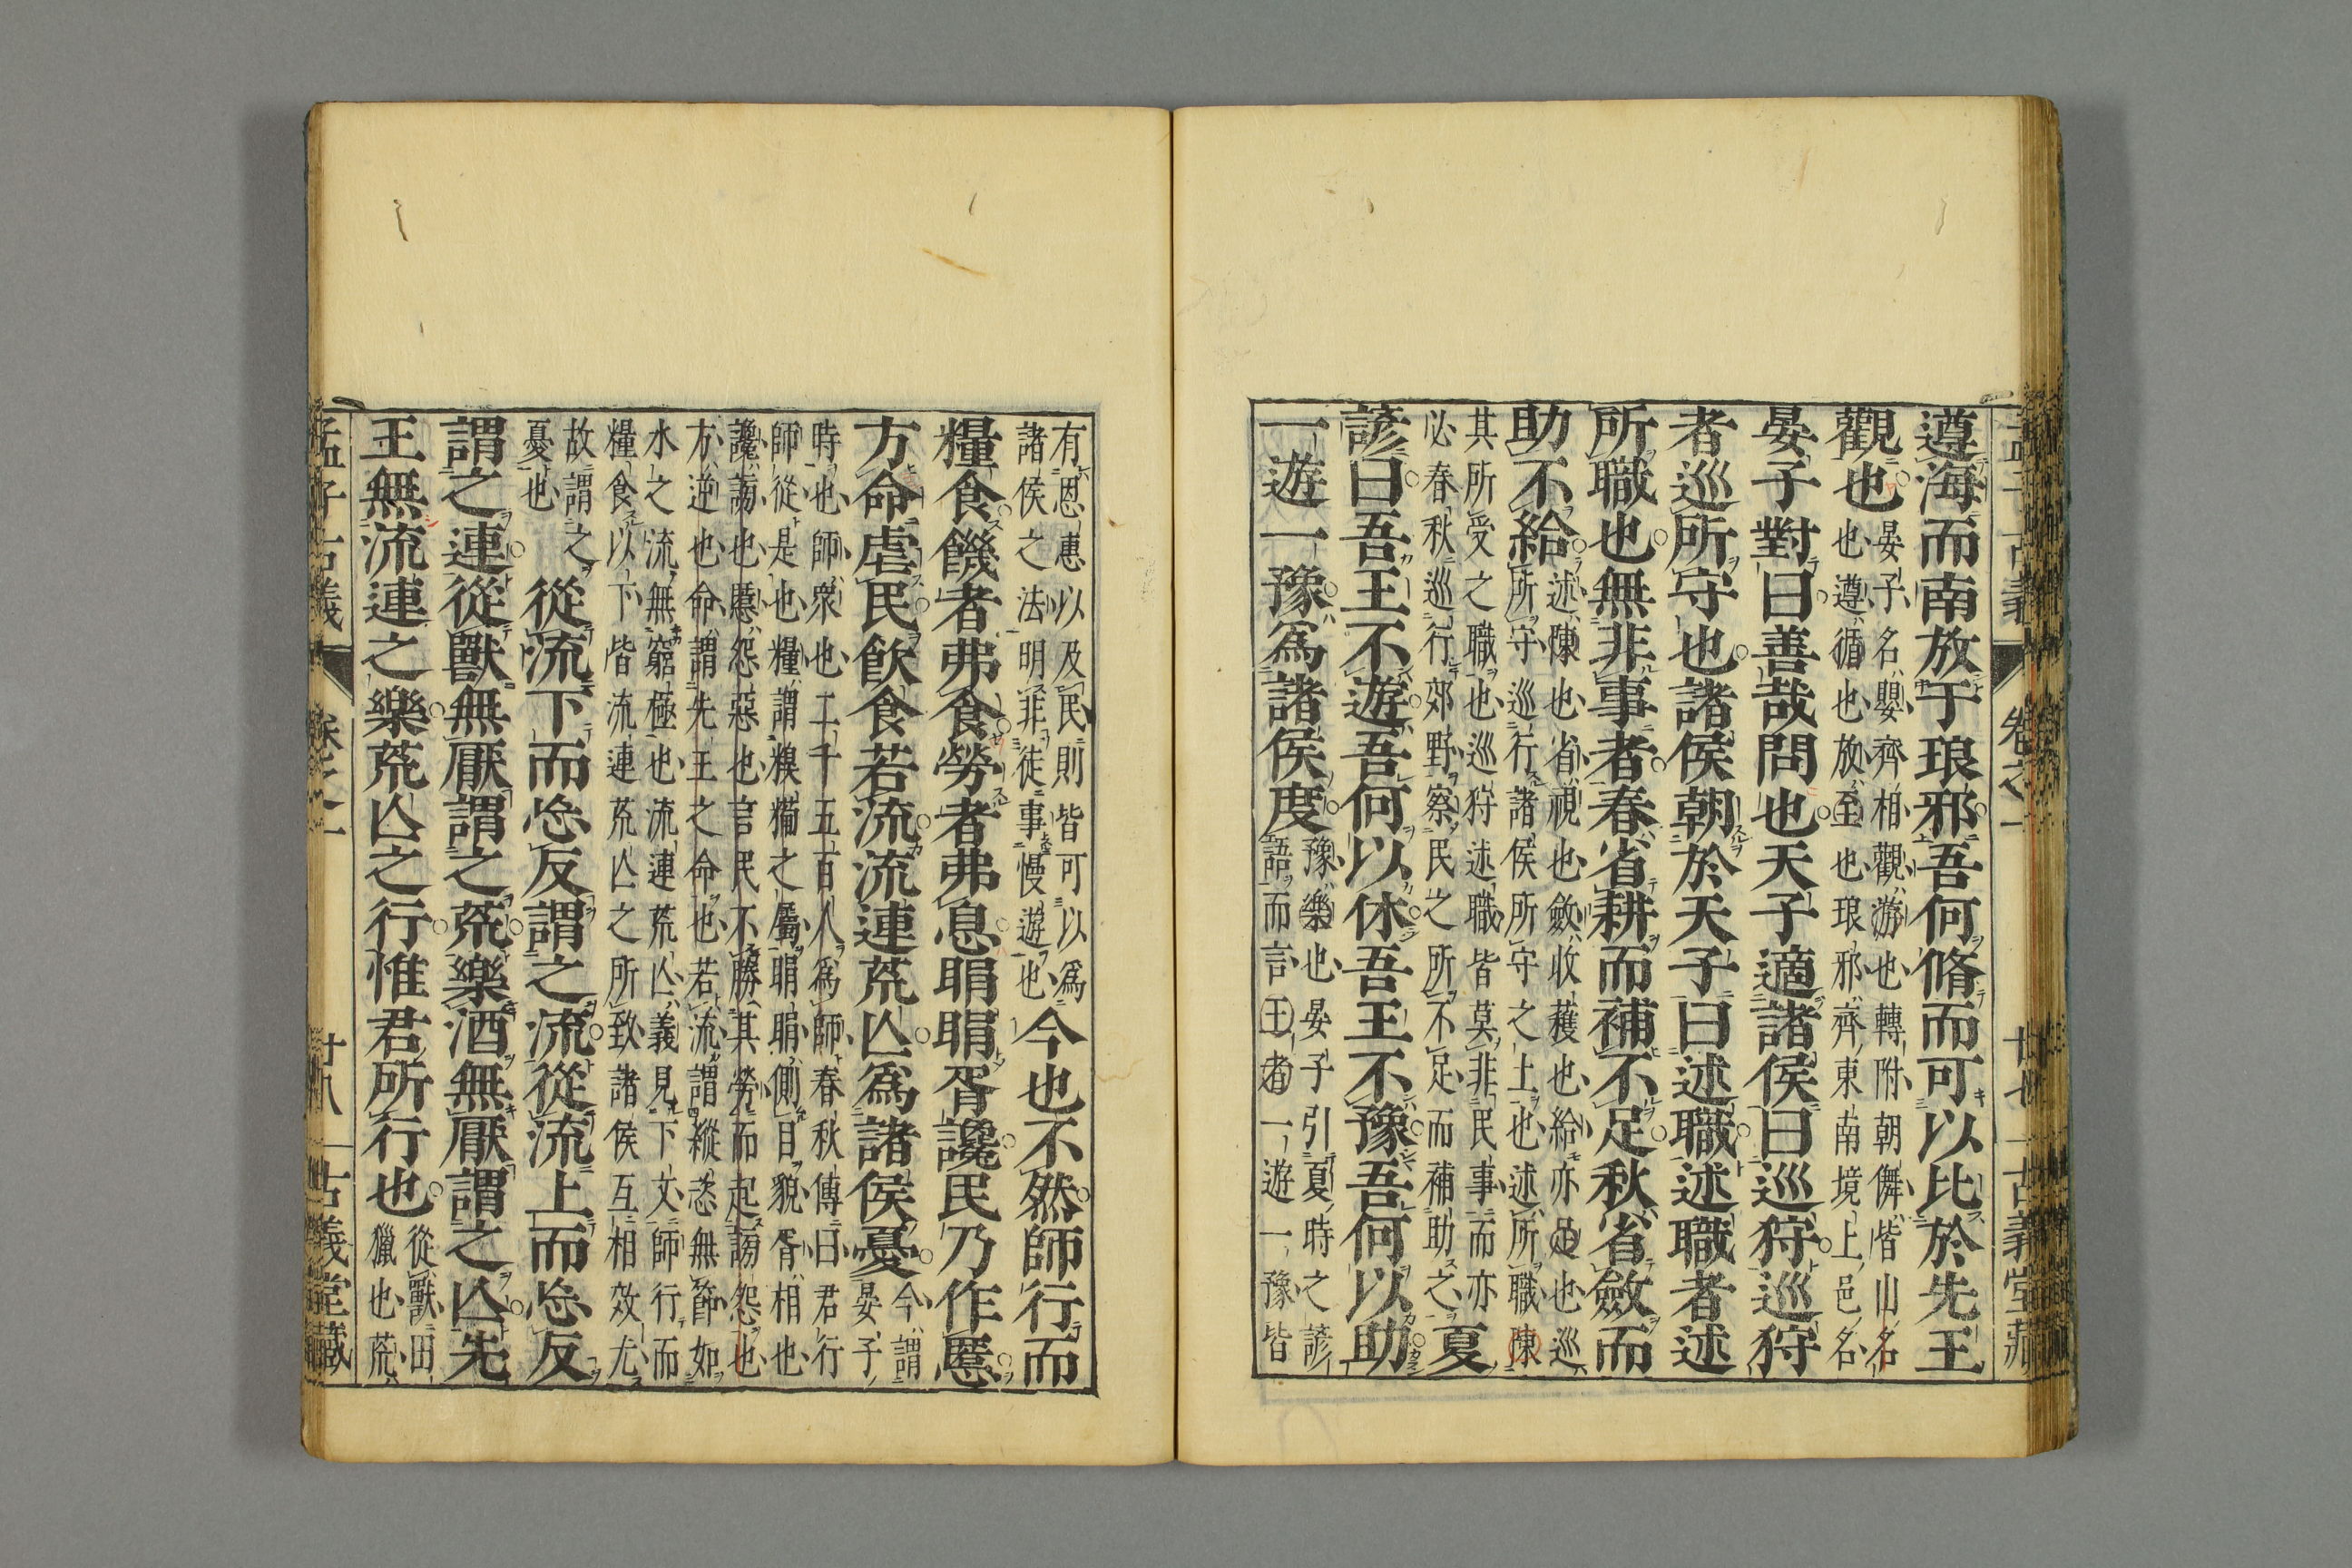 遵海而南放于琅邪吾何脩而可以比於先王
觀也
晏子名嬰齊相觀游也轉附朝儛皆山名
也遵循也放至也琅邪齊東南境上邑名
晏子對曰善哉問也天子適諸侯曰巡狩巡狩
者巡所守也諸侯朝於天子曰述職述職者述
所職也無非事者春省耕而補不足秋省斂而
助不給
述陳也省視也斂收穫也給亦足也巡
所守巡行諸侯所守之上也述所職陳
其所受之職也巡狩述職皆莫非民事而亦
必春秋巡行郊野察民之所不足而補助之
夏
諺曰吾王不遊吾何以休吾王不豫吾何以助
一遊一豫爲諸侯度
豫樂也晏子引夏時之諺
語而言王者一遊一豫皆
有恩惠以及民則皆可以爲
諸侯之法明非徒事慢遊也
今也不然師行而
糧食飢者弗食勞者弗息睊睊胥讒民乃作慝
方命虐民飲食若流流連荒亾爲諸侯憂
今謂
晏子
時也師衆也二千五百人爲師春秋傳曰君行
師從是也糧謂糗糒之屬睊睊側目貌胥相也
讒謗也慝怨惡也言民不勝其勞而起謗怨也
方逆也命謂先王之命也若流謂縱恣無節如
水之流無窮極也流連荒亾義見下文師行而
糧食以下皆流連荒亾之所致諸侯互相效尤
故謂之
憂也
從流下而忘反謂之流從流上而忘反
謂之連從獸無厭謂之荒樂酒無厭謂之亾先
王無流連之樂荒亾之行惟君所行也
從獸田
獵也荒
孟子古義 卷之一 廿七 古義堂藏
孟子古義 卷之一 廿八 古義堂藏